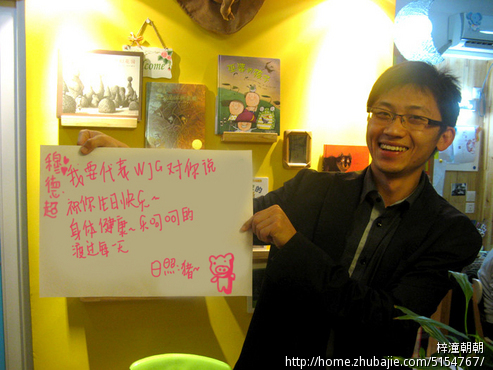 come
穆德超
我要代表WJG对你说
祝你生日快乐~
身体健康~乐呵呵的
渡过每一天
日照:猪~
的
梓潼朝朝
http://home.zhubajie.com/51547767/